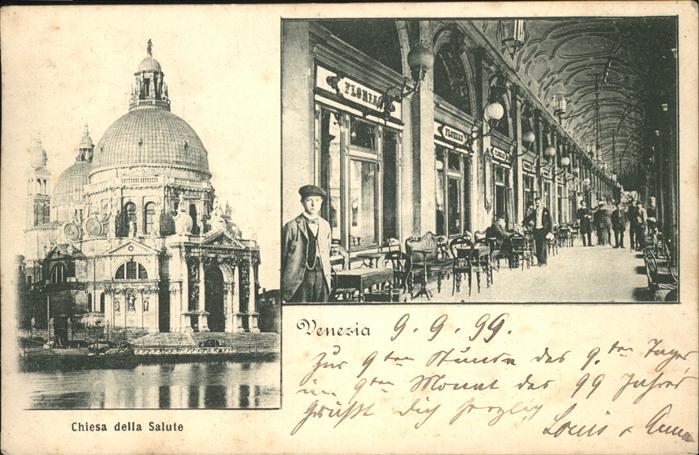 FLORIAN
FLORIAN
Venezia 9. 9. 99.
Zur 9ten Stunde des 9.ten Tages
im 9ten Monat des 99 Jahres
Grüßt Dich herzlich
Louis & Anna
Chiesa della Salute